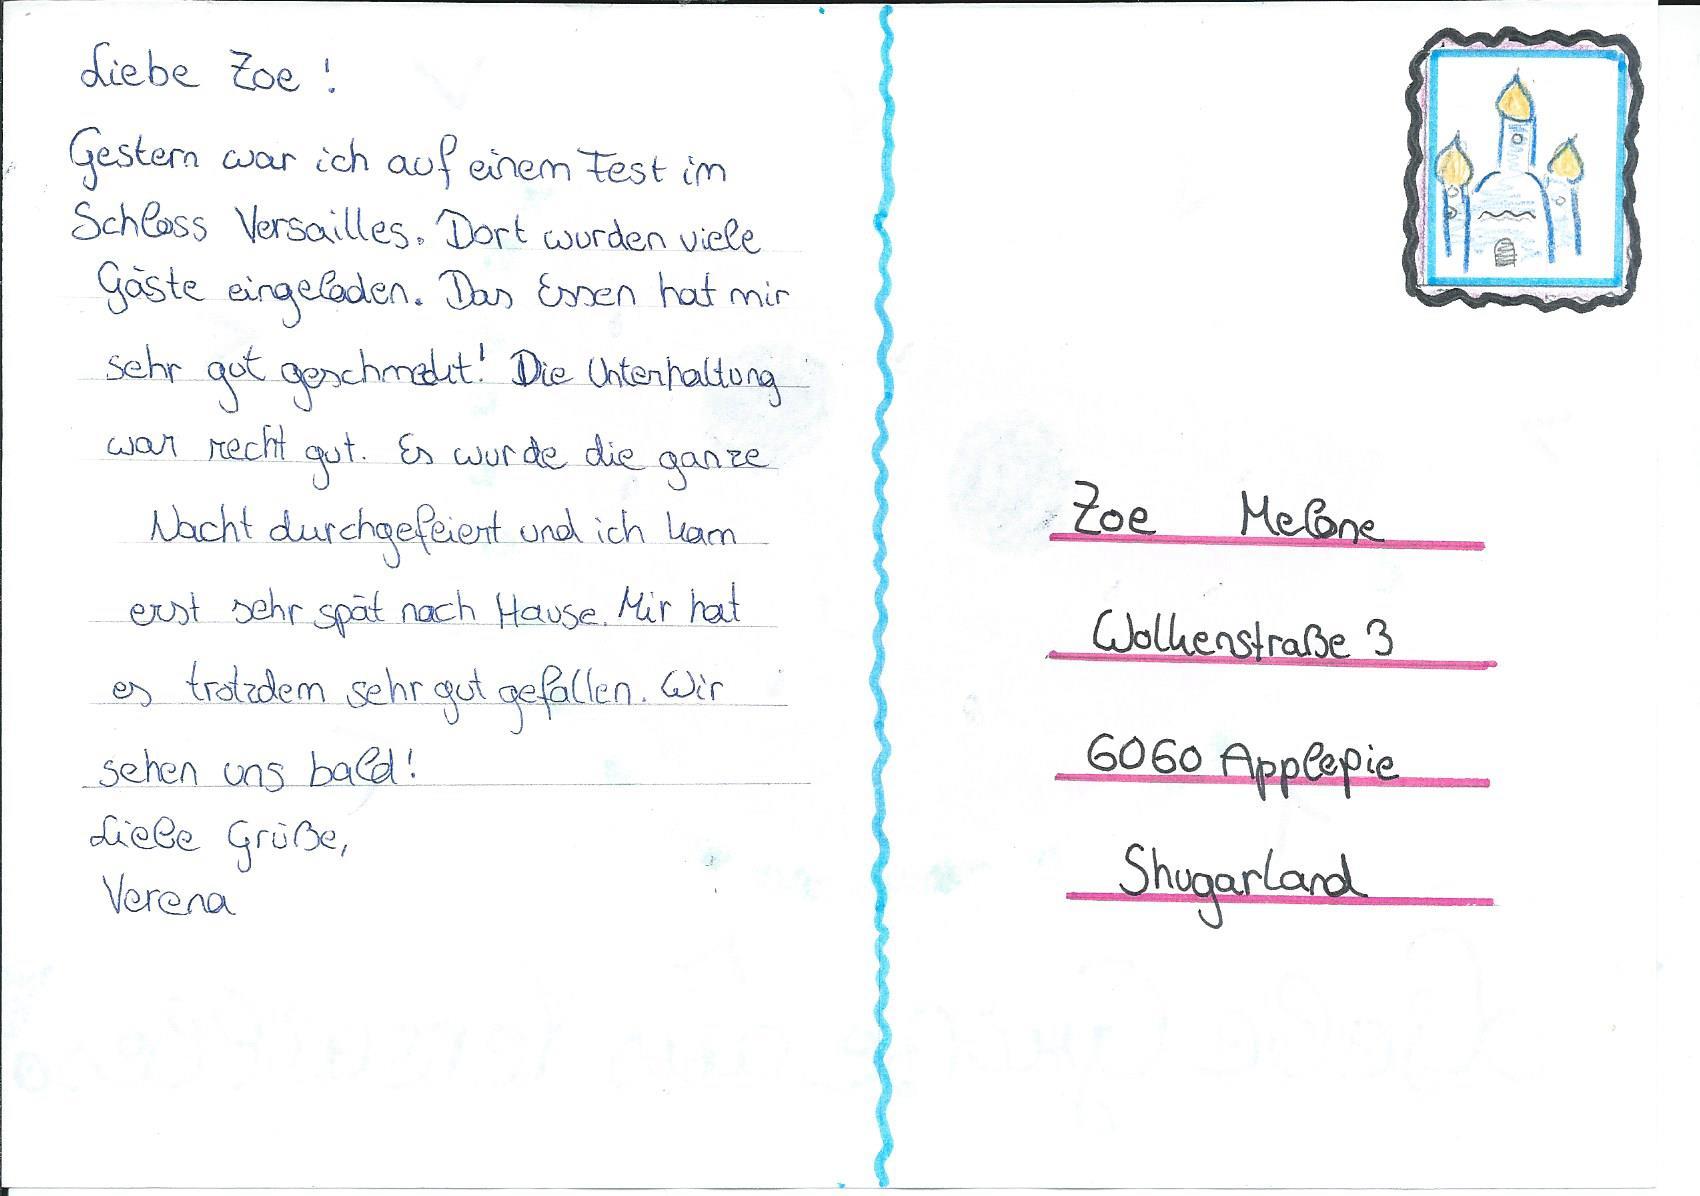 Liebe Zoe!
Gestern war ich auf einem Fest im
Schloss Versailles. Dort wurden viele
Gäste eingeladen. Das Essen hat mir
sehr gut geschmeckt! Die Unterhaltung
war recht gut. Es wurde die ganze
Nacht durchgefeiert und ich kam
erst sehr spät nach Hause. Mir hat
es trotzdem sehr gut gefallen. Wir
sehen uns bald!
Liebe Grüße,
Verena
Zoe Melone
Wolkenstraße 3
6060 Applepie
Shugarland